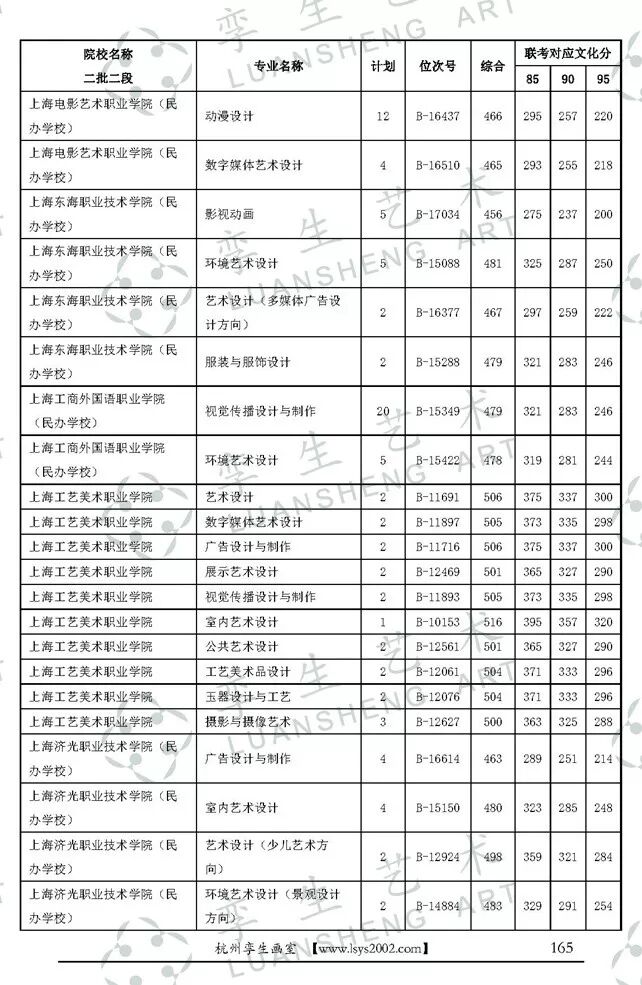 孪生艺术
LUANSHENG ART
院校名称 专业名称 计划 位次号 综合 联考对应文化分
二批二段 85 90 95
上海电影艺术职业学院（民
办学校） 动漫设计 12 B-16437 466 295 257 220
上海电影艺术职业学院（民
办学校） 数字媒体艺术设计 4 B-16510 465 293 255 218
上海东海职业技术学院（民
办学校） 影视动画 5 B-17034 456 275 237 200
上海东海职业技术学院（民
办学校） 环境艺术设计 5 B-15088 481 325 287 250
上海东海职业技术学院（民 艺术设计（多媒体广告设
办学校） 计方向） 2 B-16377 467 297 259 222
上海东海职业技术学院（民
办学校） 服装与服饰设计 2 B-15288 479 321 283 246
上海工商外国语职业学院
（民办学校） 视觉传播设计与制作 20 B-15349 479 321 283 246
上海工商外国语职业学院
（民办学校） 环境艺术设计 5 B-15422 478 319 281 244
上海工艺美术职业学院 艺术设计 2 B-11691 506 375 337 300
上海工艺美术职业学院 数字媒体艺术设计 2 B-11897 505 373 335 298
上海工艺美术职业学院 广告设计与制作 2 B-11716 506 375 337 300
上海工艺美术职业学院 展示艺术设计 2 B-12469 501 365 327 290
上海工艺美术职业学院 视觉传播设计与制作 2 B-11893 505 373 335 298
上海工艺美术职业学院 室内艺术设计 1 B-10153 516 395 357 320
上海工艺美术职业学院 公共艺术设计 2 B-12561 501 365 327 290
上海工艺美术职业学院 工艺美术品设计 2 B-12061 504 371 333 296
上海工艺美术职业学院 玉器设计与工艺 2 B-12076 504 371 333 296
上海工艺美术职业学院 摄影与摄像艺术 3 B-12627 500 363 325 288
上海济光职业技术学院（民
办学校） 广告设计与制作 4 B-16614 463 289 251 214
上海济光职业技术学院（民
办学校） 室内艺术设计 4 B-15150 480 323 285 248
上海济光职业技术学院（民 艺术设计（少儿艺术方
办学校） 向） 2 B-12924 498 359 321 284
上海济光职业技术学院（民 环境艺术设计（景观设计
办学校） 方向） 2 B-14884 483 329 291 254
杭州孪生画室 【www.lsys2002.com】 165